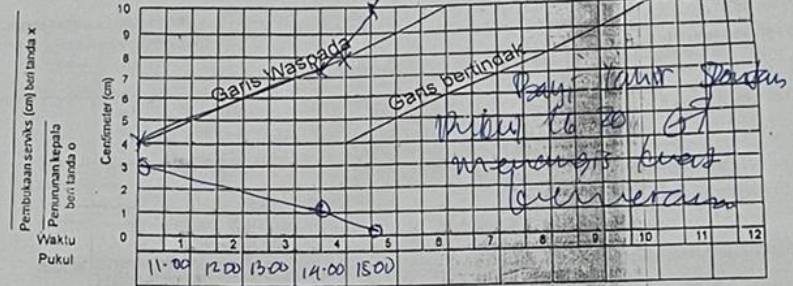 Pembukaan serviks (cm) beri tanda x
Penurunan kepala
beri tanda o
Centimeter (cm)
10
9
8
7
6
5
4
3
2
1
0
Garis Waspada
Garis bertindak
Bayi lahir
menangis kuat
Waktu 1 2 3 4 5 6 7 8 9 10 11 12
Pukul 11.00 12.00 13.00 14.00 15.00